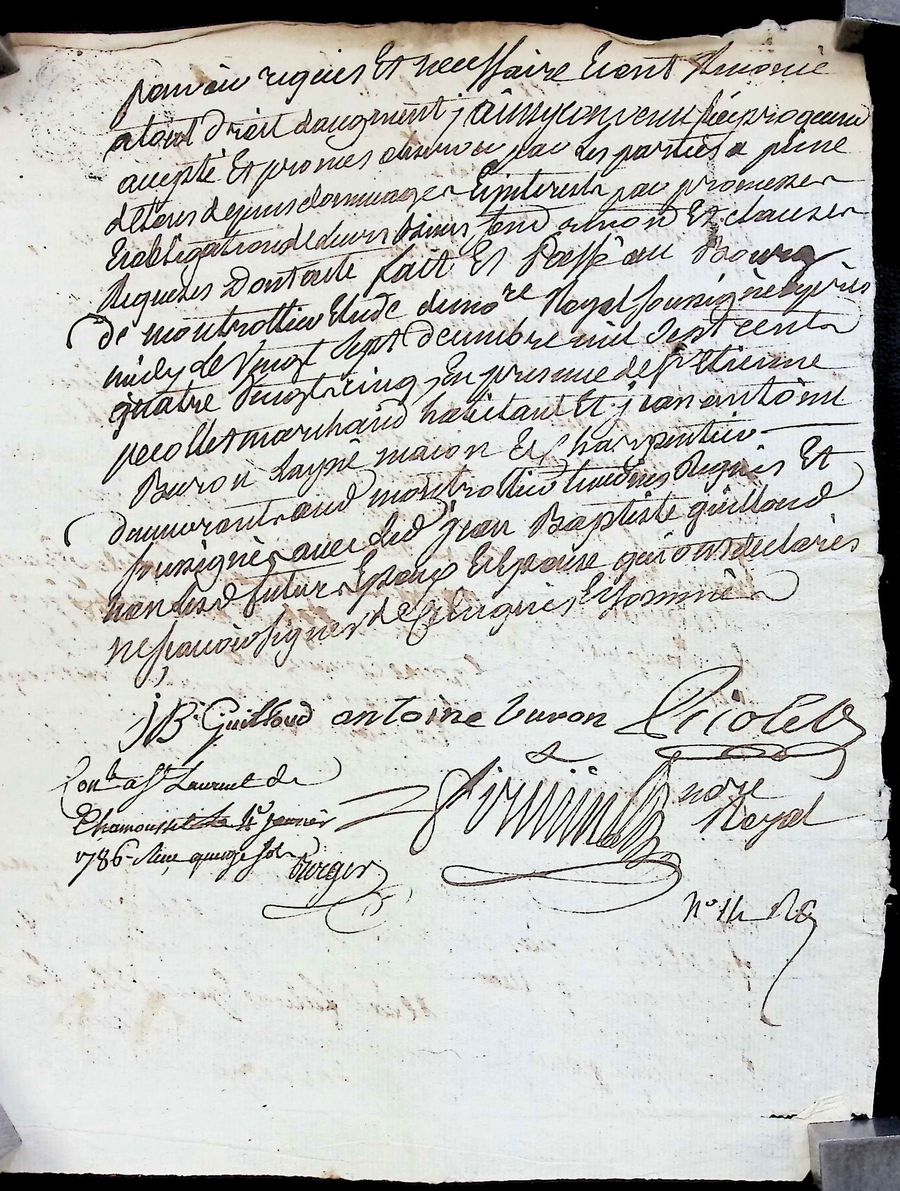 pouvoir requis Et necessaire Et ont Renoncé
a tout droit daugment ; ainsy convenu réciproquem
accepté Et promes observer par les parties a peine
de tous depens dommages Et interets par promesses
Et obligation de leurs biens, Renon Et clauses
Requises Dont acte fait Et Passé au Bourg
de montrottier Etude du nore Royal soussigné après
midy le Vingt Sept decembre mil Sept cent
quatre Vingt cinq, En presence de Sr Etienne
marchand habitant Et jean antoine
Buron Layné macon Et Charpentier
demeurant aud montrottier temoins Requis Et
soussignés avec led jean Baptiste guilloud
non lesd futur Epoux Et Epouse qui ont declarés
ne savoir signer de ce Enquis Et sommés
JB. Guilloud antoine buron
nore
Royal
Conlé a St Laurent de
Chamousset le 4 janvier
1786 Reçu quinze sols
No 14